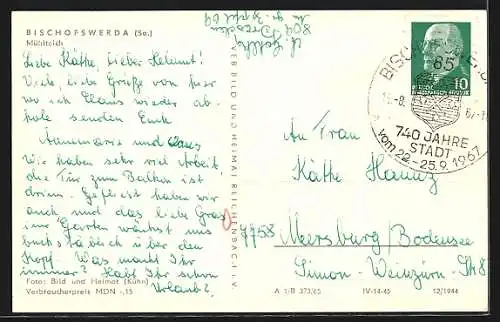 BISCHOFSWERDA (Sa.)
Mühlteich
Liebe Käthe, lieber Helmut!
Viele, liebe Grüße von hier
wo ich Claus wieder ab-
hole senden Euch
Annmarie und Claus
Wir haben sehr viel Arbeit,
die Tür zum Balkon ist
drin. Gefliest haben wir
auch und das liebe Gras
im Garten wächst uns
buchstäblich über den
Kopf. Was macht Ihr
immer? Habt Ihr schon
Urlaub?
Foto: Bild und Heimat (Kühn)
Verbraucherpreis MDN -,15
VEB BILD UND HEIMAT REICHENBACH i. V.
801 Dresden
BISCHOFSWERDA
65
740 JAHRE
STADT
vom 22.-25.9.1967
DEUTSCHE
DEMOKRATISCHE REPUBLIK
10
An Frau
Käthe
7758
Meersburg/Bodensee
Simon-Weinzürn-Str 8
A 1/B 373/65
IV-14-45
12/1944